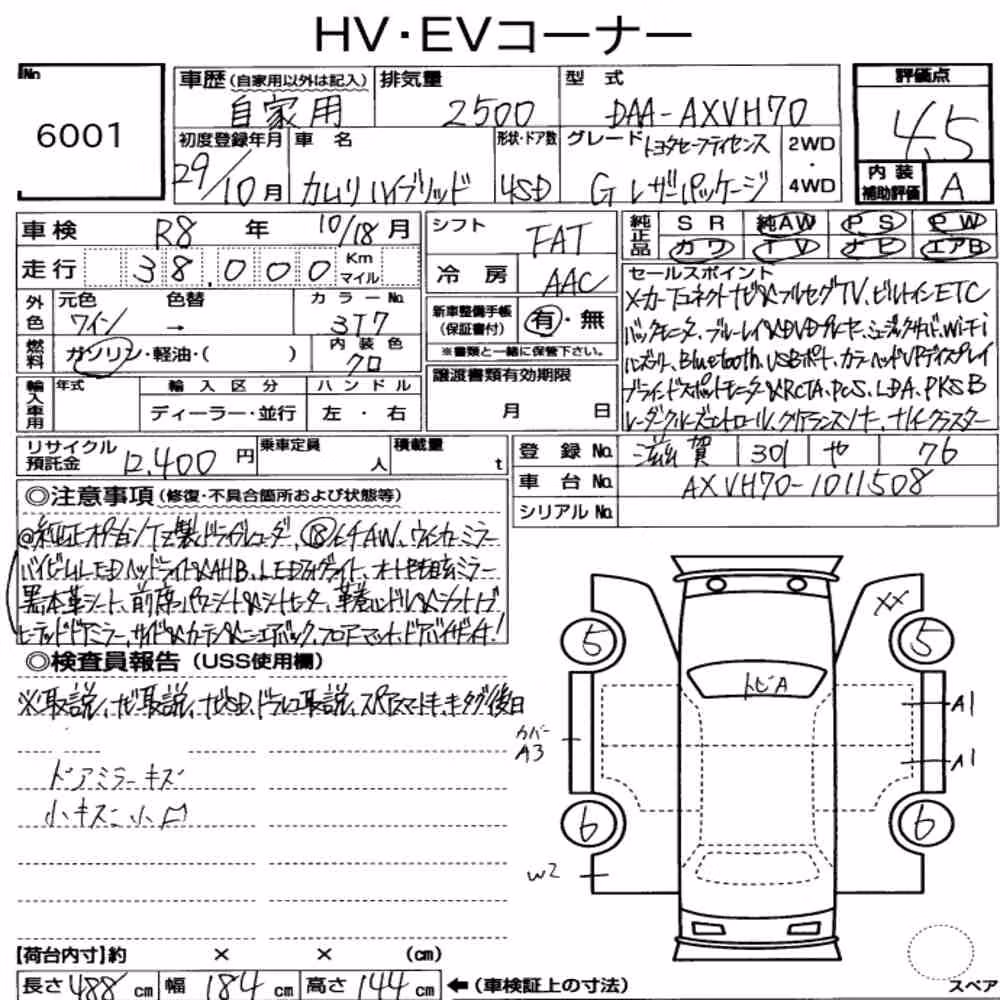 HV・EVコーナー
No. 6001
車歴 (自家用以外は記入) 自家用
排気量 2500
型式 DAA-AXVH70
評価点 4.5
初度登録年月 29/10月
車名 カムリ ハイブリッド
形状・ドア数 4SD
グレード トヨタセーフティセンス
G レザーパッケージ
2WD・4WD
内装補助評価 A
車検 R8年 10/18月
シフト FAT
純正品 SR 純AW PS PW
カワ TV ナビ エアB
走行 38,000 Km マイル
冷房 AAC
外色 元色 ワイン 色替 → カラーNo. 3T7
新車整備手帳(保証書付) 有・無
※書類と一緒に保管下さい。
燃料 ガソリン・軽油・( ) 内装色 クロ
譲渡書類有効期限 月 日
輸入車用 年式 輸入区分 ディーラー・並行 ハンドル 左・右
セールスポイント
メーカーTコネクトナビ&フルセグTV、ビルトインETC
バックモニター、ブルーレイ&DVDプレーヤー、ミュージックサーバー、Wi-Fi
ハンズフリー、Bluetooth、USBポート、カラーヘッドUPディスプレイ
ブラインドスポットモニター&RCTA、PCS、LDA、PKSB
レーダークルーズコントロール、クリアランスソナー、ナノイー、クラスター
リサイクル預託金 12,400円
乗車定員 人
積載量 t
登録No. 滋賀 301 や 76
車台No. AXVH70-1011508
シリアルNo.
◎注意事項 (修復・不具合箇所および状態等)
◎純正オプションTZ製ドライブレコーダー、⑱インチAW、ウィンカーミラー
バイビームLEDヘッドライト&AHB、LEDフォグライト、オート防眩ミラー
黒本革シート、前席パワーシート&シートヒーター、革巻ハンドル&シフトノブ
ヒーテッドドアミラー、サイド&カーテン&ニーエアバック、フロアマット、ドアバイザー付!
◎検査員報告 (USS使用欄)
※取説、ナビ取説、ナビSD、ドラレコ取説、スペアスマートキー、キータグ後日
ドアミラーキズ
小キズ 小凹
XX
5 5
トビA
カバー A3
A1
A1
6 6
W2
【荷台内寸】約 × × (cm)
長さ 488 cm 幅 184 cm 高さ 144 cm ←(車検証上の寸法)
スペア